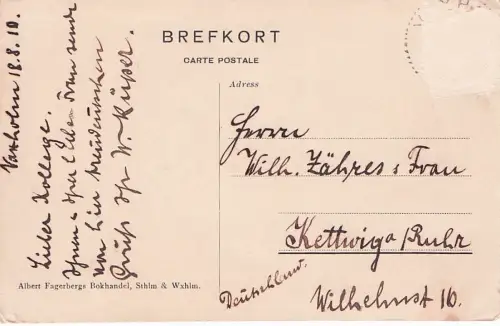 BREFKORT
CARTE POSTALE
Adress
Vaxholm 18.8.10.
Lieber Kollege.
Ihnen u. Ihrer lieben Frau sende
von hier
Gruß Ihr W. Küper.
Herrn
Wilh. Zähres & Frau
Kettwig a/Ruhr
Wilhelmst 16.
Deutschland.
Albert Fagerbergs Bokhandel, Sthlm & Wxhlm.